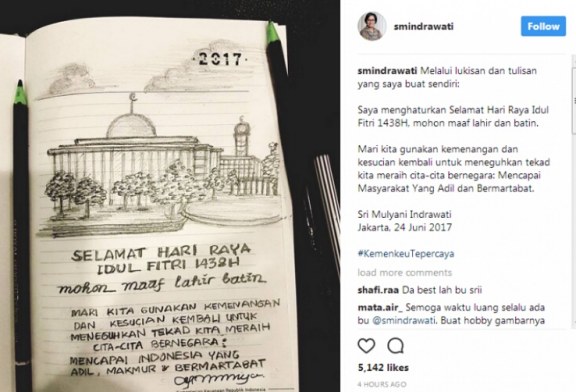 2017
SELAMAT HARI RAYA
IDUL FITRI 1438H
mohon maaf lahir batin
MARI KITA GUNAKAN KEMENANGAN
DAN KESUCIAN KEMBALI UNTUK
MENEGUHKAN TEKAD KITA MERAIH
CITA-CITA BERNEGARA:
MENCAPAI INDONESIA YANG
ADIL, MAKMUR & BERMARTABAT
Republik Indonesia
smindrawati
Follow
smindrawati Melalui lukisan dan tulisan
yang saya buat sendiri:
Saya menghaturkan Selamat Hari Raya Idul
Fitri 1438H, mohon maaf lahir dan batin.
Mari kita gunakan kemenangan dan
kesucian kembali untuk meneguhkan tekad
kita meraih cita-cita bernegara: Mencapai
Masyarakat Yang Adil dan Bermartabat.
Sri Mulyani Indrawati
Jakarta, 24 Juni 2017
#KemenkeuTepercaya
load more comments
shafi.raa Da best lah bu srii
mata.air_ Semoga waktu luang selalu ada
bu @smindrawati. Buat hobby gambarnya
5,142 likes
4 HOURS AGO